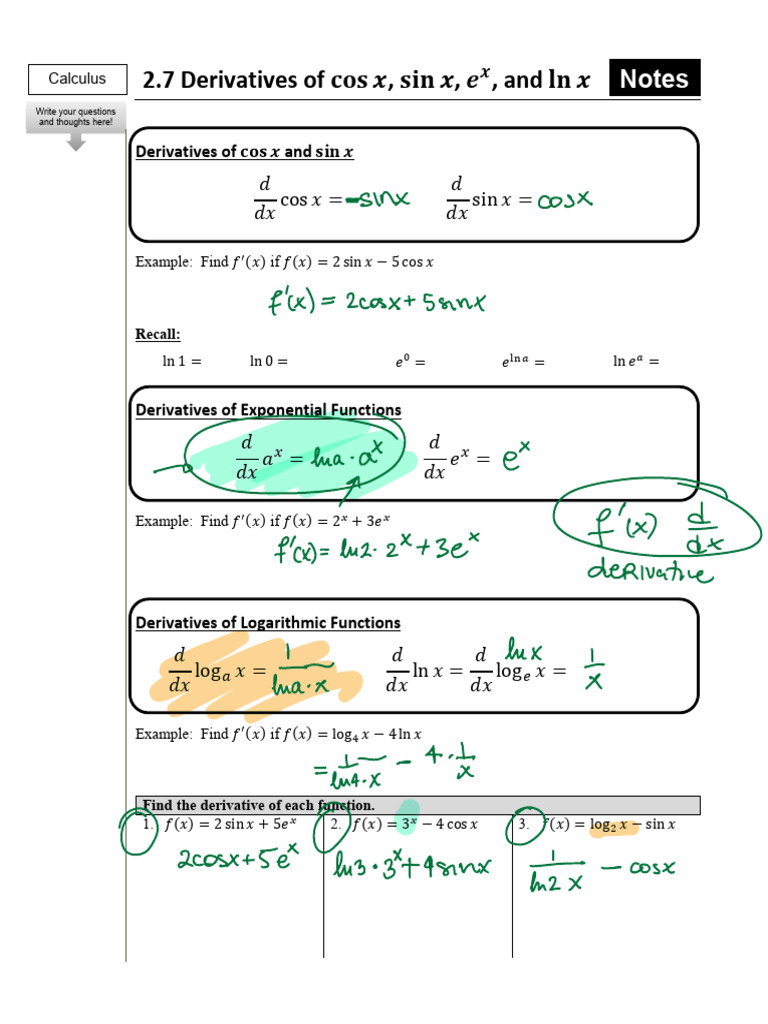 Calculus
2.7 Derivatives of cos x, sin x, e^x, and ln x
Notes
Write your questions
and thoughts here!
Derivatives of cos x and sin x
d/dx cos x = -sinx    d/dx sin x = cosx
Example: Find f'(x) if f(x) = 2 sin x − 5 cos x
f'(x) = 2cosx + 5sinx
Recall:
ln 1 =    ln 0 =    e^0 =    e^(ln a) =    ln e^a =
Derivatives of Exponential Functions
d/dx a^x = lna · a^x    d/dx e^x = e^x
Example: Find f'(x) if f(x) = 2^x + 3e^x
f'(x) = ln2 · 2^x + 3e^x
f'(x)  d/dx
deRivative
Derivatives of Logarithmic Functions
d/dx log_a x = 1/(lna · x)    d/dx ln x = d/dx log_e x = 1/x
lnx
Example: Find f'(x) if f(x) = log_4 x − 4 ln x
= 1/(ln4 · x) − 4 · 1/x
Find the derivative of each function.
1. f(x) = 2 sin x + 5e^x
2cosx + 5e^x
2. f(x) = 3^x − 4 cos x
ln3 · 3^x + 4sinx
3. f(x) = log_2 x − sin x
1/(ln2 x) − cosx